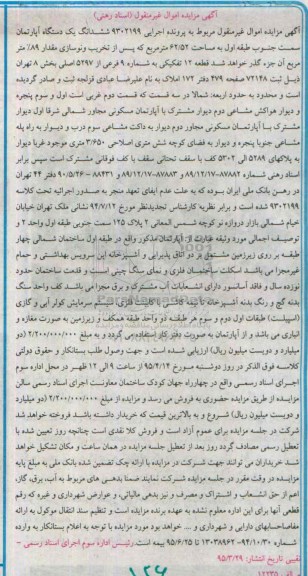 آگهی مزایده اموال غیرمنقول (اسناد رهنی)
آگهی مزایده اموال غیرمنقول مربوط به پرونده اجرایی ۹۳۰۲۱۹۹ ششدانگ یک دستگاه آپارتمان
سمت جنوب طبقه اول به مساحت ۶۲/۵۲ مترمربع که پس از تخریب ونوسازی مقدار ۸۹٪ متر
مربع آن جزء گذر خواهد شد قطعه ۱۲ تفکیکی به شماره ۹ فرعی از ۵۲۹۷ اصلی بخش ۸ تهران
ذیل ثبت ۷۲۱۴۸ صفحه ۴۷۹ دفتر ۱۷۲ املاک به نام علیرضا عبادی قزلجه ثبت و صادر گردیده
است و محدود به حدود اربعه: شمالا در سه قسمت که قسمت دوم غربی است اول و سوم پنجره
و دیوار هواکش مشاعی دوم دیوار مشترک با آپارتمان مسکونی مجاور شمالی شرقا اول دیوار
مشترک با آپارتمان مسکونی مجاور دوم دیوار به داکت مشاعی سوم درب و دیوار به راه پله
مشاعی جنوبا پنجره و دیوار به فضای کوچه شش متری اصلاحی ۳/۶۵۰ متری موجود غربا دیوار
به پلاکهای ۵۲۸۹ الی ۵۳۰۲ کف با سقف تحتانی سقف با کف فوقانی مشترک است سپس برابر
اسناد رهنی شماره ۸۷۸۸۲-۸۹/۱۲/۱۷ و ۸۷۸۸۳-۸۹/۱۲/۱۷ و ۸۸۴۳۱-۹۰/۵/۲۶ دفتر ۴۴ تهران
در رهن بانک ملی ایران بوده که به علت عدم ایفای تعهد منجر به صدور اجرائیه تحت کلاسه
۹۳۰۲۱۹۹ شده است و برابر نظریه کارشناس تجدیدنظر مورخ ۹۴/۷/۱۲ نشانی ملک تهران خیابان
خیام شمالی بازار دروازه نو کوچه شمس المعالی ۲ پلاک ۱۲۵ سمت جنوبی طبقه اول واحد ۲ و
توصیف اجمالی مورد وثیقه عبارت از آپارتمان مذکور واقع در طبقه اول ساختمان شمالی چهار
طبقه بر روی زیرزمین مشتمل بر دو اتاق پذیرایی و آشپزخانه این سرویس بهداشتی و حمام
غیرمجزا می باشد اسکلت ساختمان فلزی و نمای سنگ چینی است و قدمت ساختمان حدود
نوزده سال و فاقد آسانسور دارای انشعابات آب مشترک و برق مجزا می باشد کف واحد سنگ
بدنه گچ و رنگ بدنه آشپزخانه تا سقف کاشی با کابینت فلزی سیستم سرمایش کولر آبی و گازی
(اسپیلت) طبقات اول دوم و سوم هر طبقه دو واحد طبقه همکف و زیرزمین به صورت مغازه و
انباری می باشد و از آپارتمان به صورت دفتر کار استفاده می گردد و به مبلغ ۲/۲۰۰/۰۰۰/۰۰۰ (دو
میلیارد و دویست میلیون ریال) ارزیابی شده است و جهت وصول طلب بستانکار و حقوق دولتی
کلاسه فوق الذکر در روز دوشنبه مورخ ۹۵/۴/۱۴ از ساعت ۹ الی ۱۲ ظهر در محل اداره سوم
اجرای اسناد رسمی واقع در چهارراه جهان کودک ساختمان معاونت اجرای اسناد رسمی سالن
مزایده از طریق مزایده حضوری به فروش می رسد و مزایده از مبلغ ۲/۲۰۰/۰۰۰/۰۰۰ (دو میلیارد
و دویست میلیون ریال) شروع و به بالاترین قیمت که خریدار داشته باشد فروخته خواهد شد
شرکت در جلسه مزایده برای عموم آزاد است و فروش کلا نقدی است چنانچه روز تعیین شده با
تعطیل رسمی مصادف گردد روز بعد از تعطیل جلسه مزایده در همان ساعت و مکان تشکیل خواهد
شد خریداران می توانند جهت شرکت در مزایده با ارائه چک تضمین شده بانک ملی به مبلغ پایه
مزایده در وقت مقرر در جلسه مزایده شرکت نمایند ضمنا بدهی های مربوط به آب، برق، گاز،
اعم از حق انشعاب و اشتراک و مصرف و نیز بدهی مالیاتی، و عوارض شهرداری و غیره که رقم
قطعی آنها برای این اداره معلوم نشده به عهده برنده مزایده است و تنظیم سند انتقال موکول به ارائه
مفاصاحسابهای دارایی و شهرداری و .... خواهد بود مورد مزایده با توجه به اعلام بستانکار به وارده
۹۴/۱۰/۳۰-۱۳۰۳۸۹۶۲ تا ۹۵/۶/۲۵ بیمه است. رئیس اداره سوم اجرای اسناد رسمی -
تقیبی تاریخ انتشار: ۹۵/۳/۲۹
۱۲۲۳۵
۱۲۶